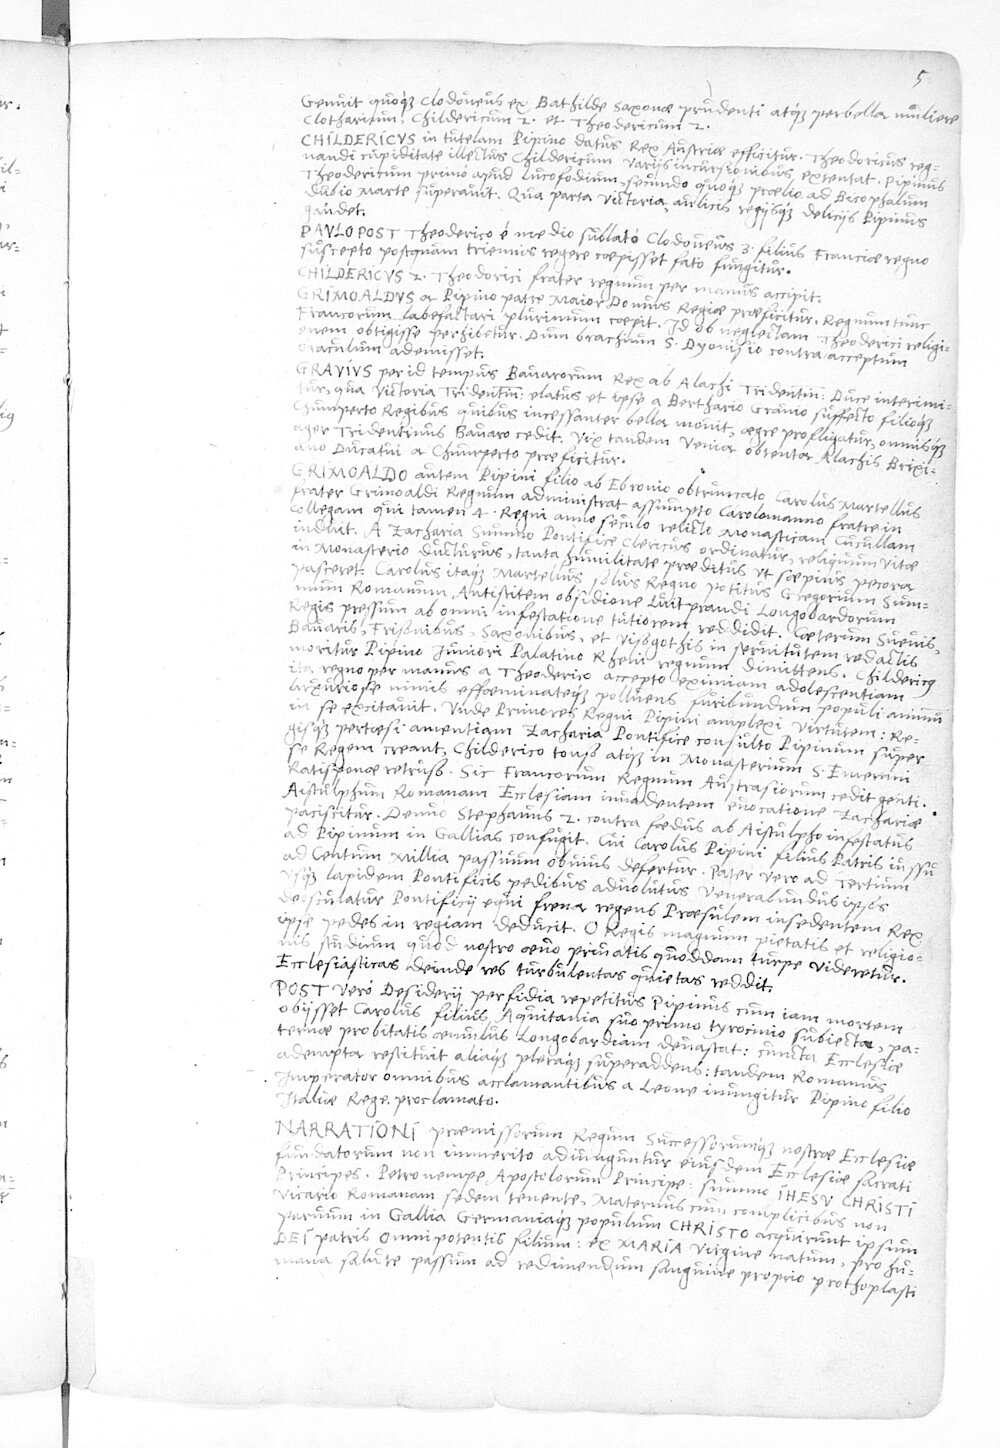 5
Genuit quoqꝫ Clodoueus ex Bathilde Saxonæ prudenti atqꝫ perbella muliere
Clotharium, Childericum 2. et Theodericum 2.
CHILDERICVS in tutelam Pipino datus Rex Austriæ efficitur. Theodoricus reg=
nandi cupiditate illectus Childericum varijs incursionibus extentat. Pipinus
Theodericum primo apud Lucofodium, secundo quoqꝫ prœlio ad Bicophalum
dubio Marte superauit. Qua parta victoria, aulicis regijsqꝫ delicijs Pipinus
gaudet.
PAVLO POST Theoderico é medio sublato Clodoueus 3. filius Franciæ regno
suscepto postquam triennis regere cœpisset fato fungitur.
CHILDERICVS 2. Theodorici frater regnum per manus accipit.
GRIMOALDVS a Pipino patre Maior Domus Regiæ præficitur. Regnum tunc
Francorum labefactari plurimum coepit. Id ob neglectam Theoderici religi=
onem obtigisse perhibetur. Dum brachium S. Dyonisio contra acceptum
oraculum ademisset.
GRAVIVS per id tempus Bauarorum Rex ab Alachi Tridentin: Duce interimi=
tur, qua victoria Tridentin: elatus et ipse a Berthario Grauio suffecto filioqꝫ
Chunperto Regibus quibus incessanter bella mouit, ægre profligatur, omnisqꝫ
ager Tridentinus Bauaro cedit. Vix tandem venia obtenta Alachis Brixi=
ano Ducatui a Chunperto præficitur.
GRIMOALDO autem Pipini filio ab Ebronio obtruncato Carolus Martellus
frater Grimoaldi Regnum administrat assumpto Carolomanno fratre in
collegam qui tamen 4. Regni anno seculo relicto Monasticam Cucullam
induit. A Zacharia Summo Pontifice Clericus ordinatur, religiuum vitæ
in Monasterio ducturus, tanta humilitate præditus vt sæpius pecora
pasceret. Carolus itaqꝫ Martellus solus Regno potitus Gregorium Sum=
mum Romanum Antistitem obsidione Luitprandi Longobardorum
Regis pressum ab omni infestatione tutiorem reddidit. Cæterum Sueuis,
Bauaris, Frisonibus, Saxonibus, et Visogothis in seruitutem redactis
moritur Pipino Juniori Palatino Rheni regnum dimittens. Childericus
ita regno per manus a Theoderico accepto eximiam adolescentiam
luxuriose nimis effœminateqꝫ polluens furibundum populi animum
in se excitauit. Vnde Primores Regni Pipini amplexi virtutem: Re=
gisqꝫ pertæsi amentiam Zacharia Pontifice consulto Pipinum super
se Regem creant, Childerico tonso atqꝫ in Monasterium S. Emerani
Ratisponæ retruso. Sic Francorum Regnum Austrasiorum cedit genti.
Aistulphum Romanam Ecclesiam inuadentem euocatione Zachariæ
paciscitur. Denuo Stephanus 2. contra fœdus ab Aistulpho infestatus
ad Pipinum in Gallias confugit. Cui Carolus Pipini filius Patris iussu
ad Centum Millia passuum obuius defertur. Pater vero ad tertium
vsqꝫ lapidem Pontificis pedibus aduolutus venerabundus ipsos
deosculatur Pontificij equi frena regens Præsulem insedentem Rex
ipse pedes in regiam deducit. O Regis magnum pietatis et religio=
nis studium quod nostro æuo priuatis quoddam turpe videretur.
Ecclesiasticas deinde res turbulentas quietas reddit.
POST veró Desiderij perfidia repetitus Pipinus cum iam mortem
obijsset Carolus filius Aquitania suo primo tyrocinio subiecta, pa=
ternæ probitatis æmulus Longobardiam deuastat: cuncta Ecclesiæ
adempta restituit aliaqꝫ pleraqꝫ superaddens: tandem Romanus
Imperator omnibus acclamantibus a Leone inungitur Pipino filio
Italiæ Rege proclamato.
NARRATIONI præmissorum Regum Successorumqꝫ nostræ Ecclesiæ
fundatorum non immerito adiunguntur eiusdem Ecclesiæ sacrati
Principes. Petro nempe Apostolorum Principe: summo IHESV CHRISTI
Vicario Romanam sedem tenente, Maternus cum complicibus non
paruum in Gallia Germaniaqꝫ populum CHRISTO acquirunt ipsum
DEI patris omnipotentis filium: ex MARIA virgine natum, pro hu=
mana salute passum ad redimendum sanguine proprio prothoplasti